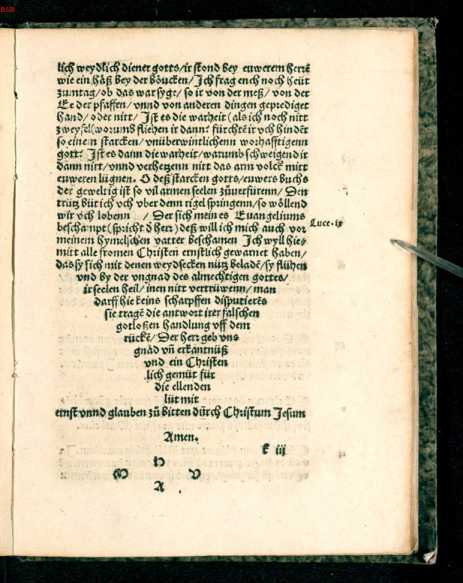 lich weydlich diener gotts/ ir stond bey euwerem herrē
wie ein häß bey der böucken/ Ich frag euch noch heüt
zumtag/ ob das war sygt/ so ir von der meß/ von der
Ee der pfaffen/ vnnd von anderen dingen geprediget
hand/ oder nitt/ Ist es die warheit (als ich noch nitt
zweyfel) worumb fliehen ir dann? fürchtē ir vch hinder
so einem starcken/ vnüberwintlichenn worhafftigenn
gott? Ist es dann die warheit/ warumb schweigend ir
dann nitt/ vnnd verhetzenn nitt das arm volck mitt
euweren lügnen. O deß starcken gotts/ euwers buchs
der geweltig ist so vil armen seelen zůuerfürenn/ Den
trütz büt ich vch vber denn rigel springenn/ so wöllend
wir vch lobenn / Der sich mein es Euangeliums
beschampt (spricht d herr) deß will ich mich auch vor
meinem hymelschen vatter beschamen Ich wyll hie
mitt alle fromen Christen ernstlich gewarnet haben/
das sy sich mit denen weydsecken nütz beladē/ sy fliehen
vnd by der vngnad des almechtigen gottes/
ir seelen heil/ inen nitt vertrüwenn/ man
darff hie keins scharpffen disputierēs
sie tragē die antwort irer falschen
gotloßen handlung vff dem
rückē/ Der herr geb vns
gnad vñ erkantnüß
vnd ein Christen
lich gemüt für
die ellenden
lüt mit
ernst vnnd glauben zů bitten durch Christum Jesum
Amen.
Luce. ix
k iij
D
M V
A .